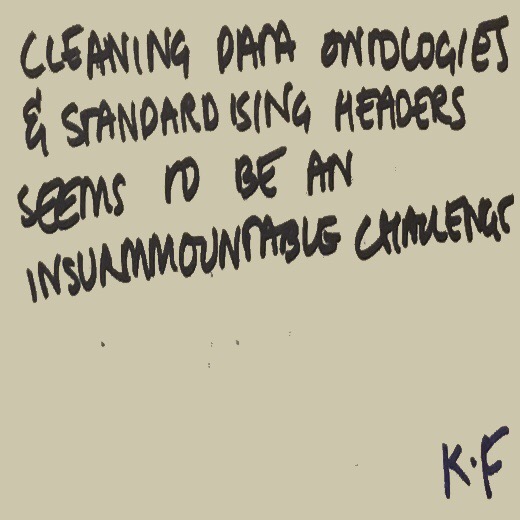 CLEANING DATA ONTOLOGIES
& STANDARDISING HEADERS
SEEMS TO BE AN
INSURMMOUNTABLE CHALLENGE
K.F